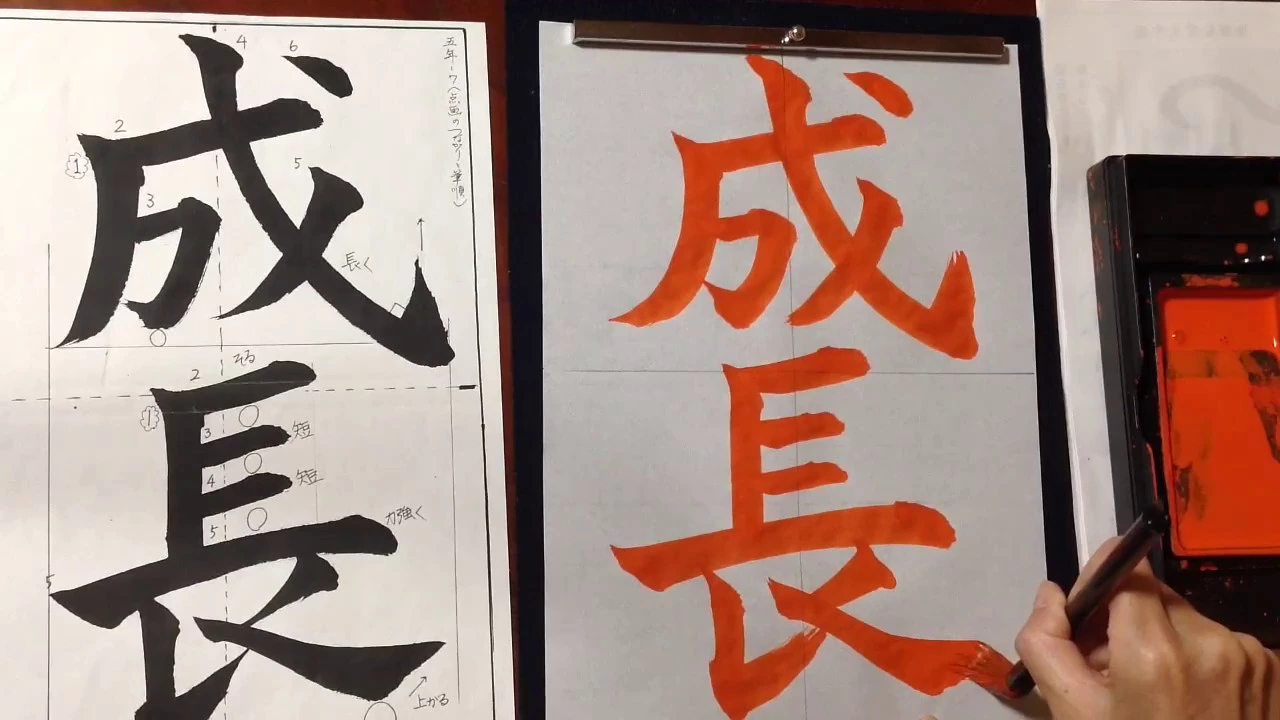 五年ーワ(点画のつながりと筆順)
成
長
1
2
3
4
5
6
長く
1
2
3
4
5
そる
短
短
力強く
上がる
成
長